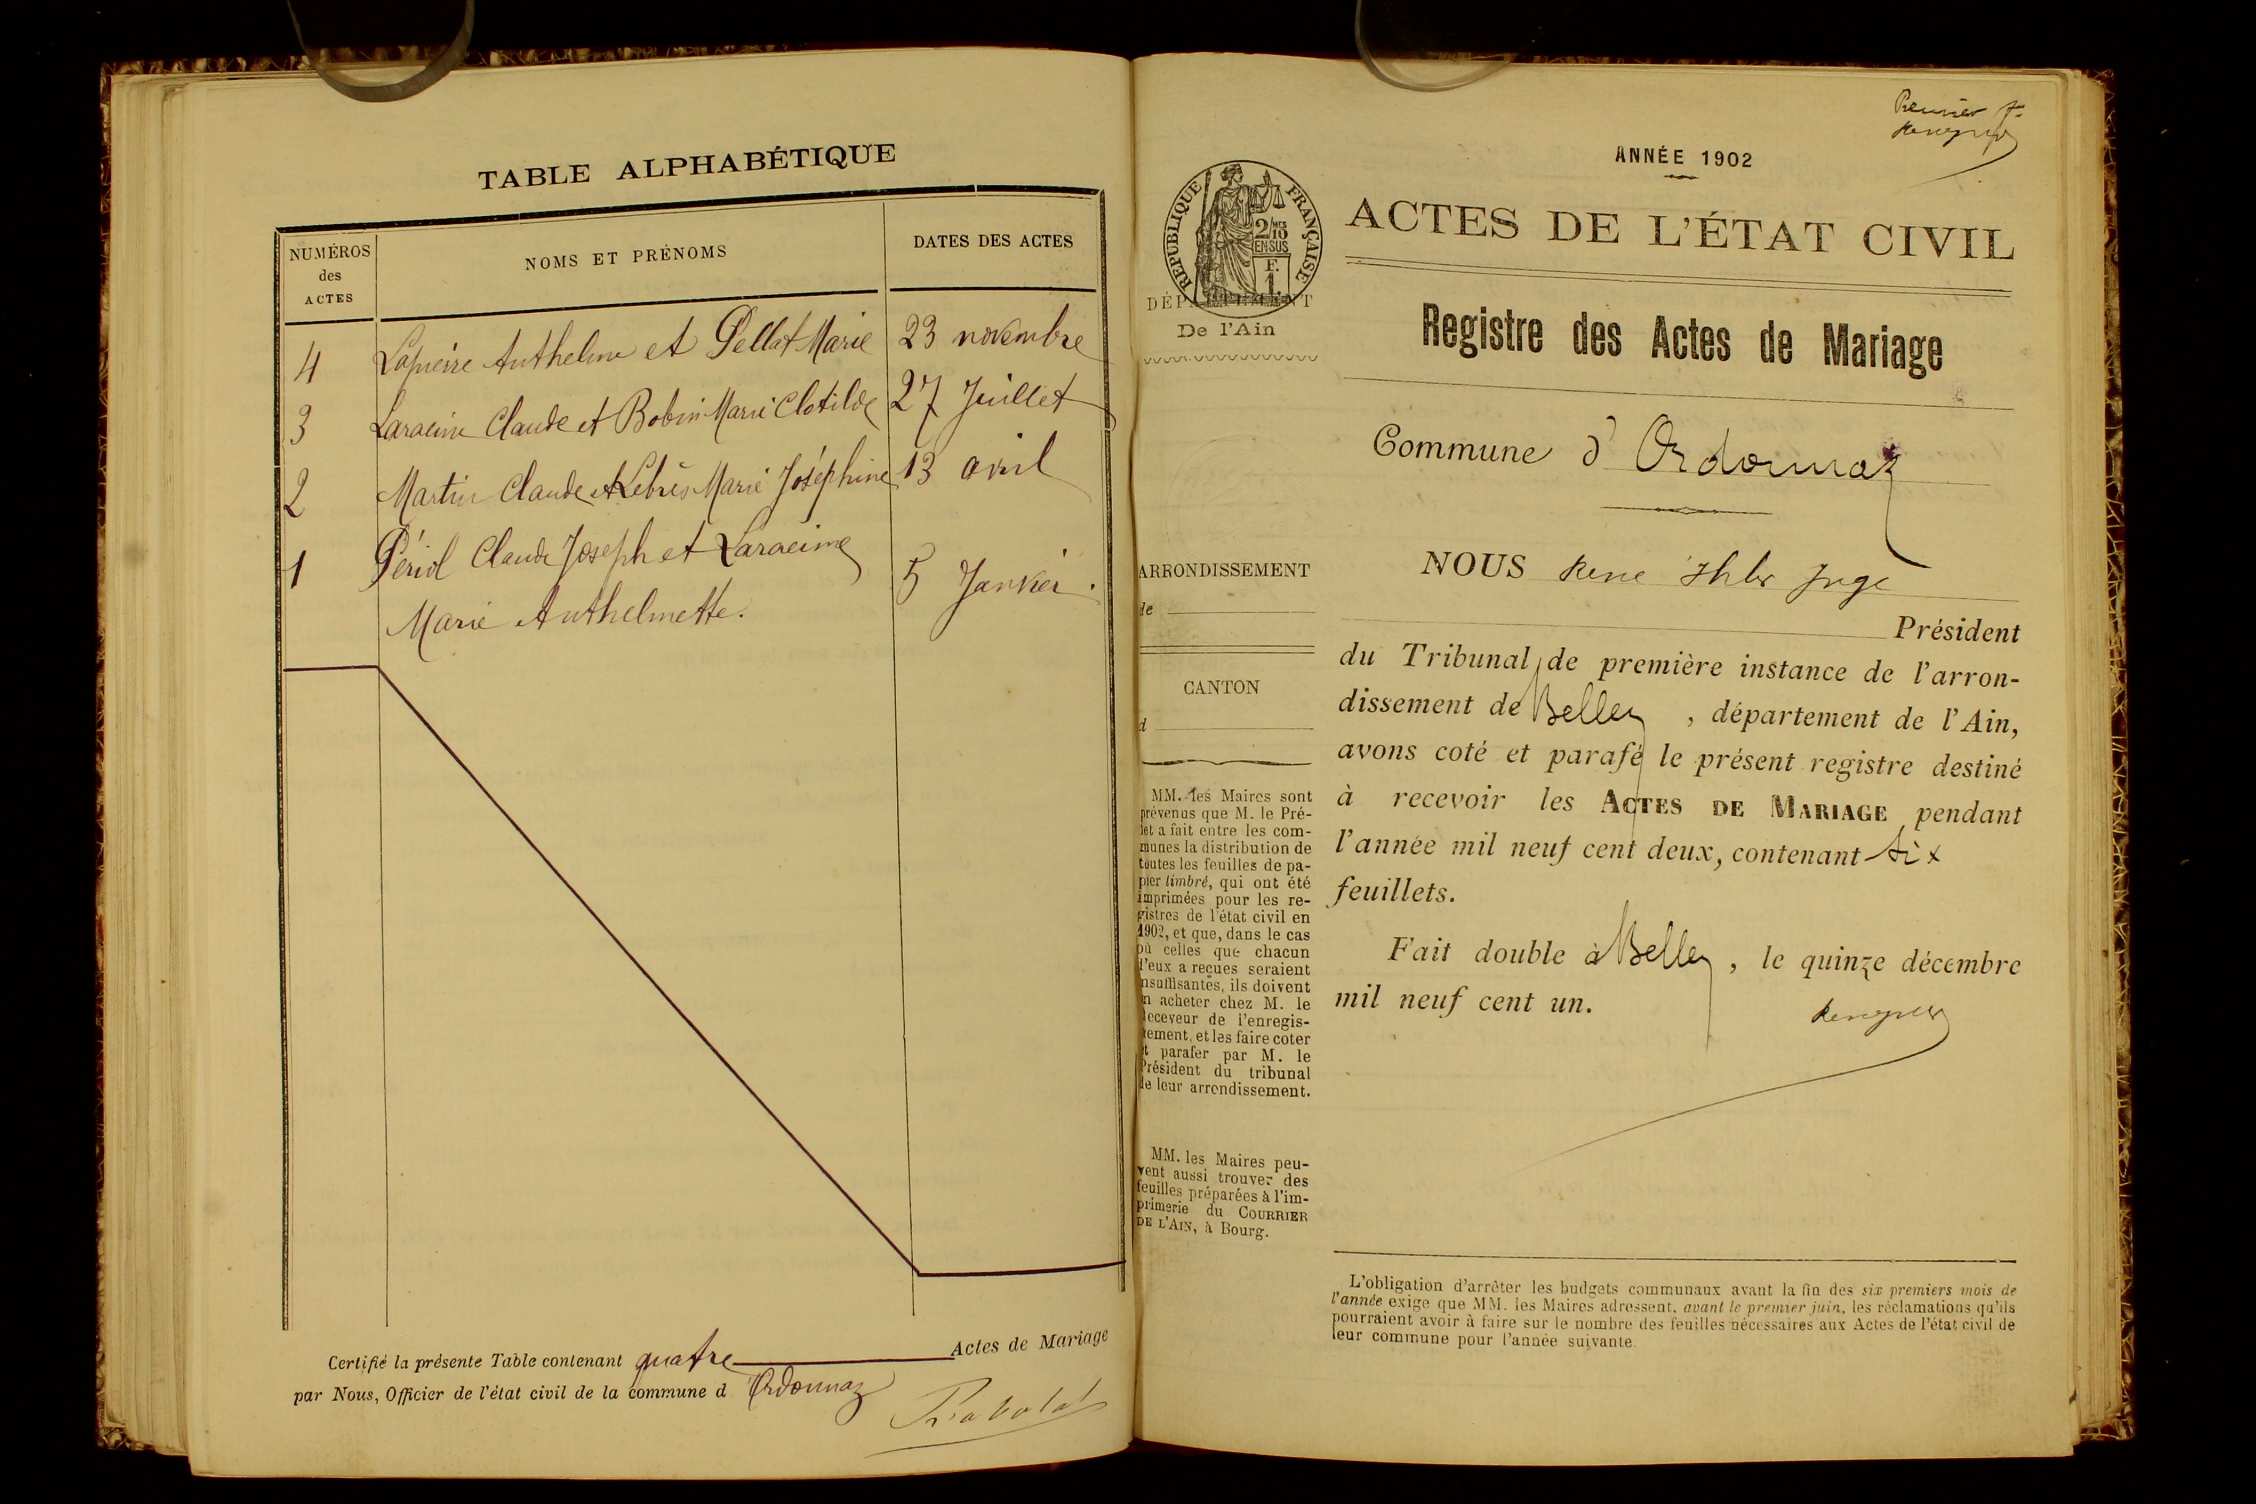 TABLE ALPHABÉTIQUE
NUMÉROS
des
ACTES
NOMS ET PRÉNOMS
DATES DES ACTES
4 Lapierre Anthelme et Pellat Marie 23 novembre
3 Laracine Claude et Bobin Marie Clotilde 27 Juillet
2 Martin Claude et Lebrès Marie Joséphine 13 avril
1 Périol Claude Joseph et Laracine
Marie Anthelmette. 5 Janvier.
Certifié la présente Table contenant quatre Actes de Mariage
par Nous, Officier de l'état civil de la commune d Ordonnaz
Premier f.
ANNÉE 1902
RÉPUBLIQUE FRANÇAISE
2/10MES
EN SUS
F.
1.
ACTES DE L'ÉTAT CIVIL
DÉPARTEMENT
De l'Ain
Registre des Actes de Mariage
Commune d'Ordonnaz
ARRONDISSEMENT
de
CANTON
d
MM. les Maires sont
prévenus que M. le Pré-
fet a fait entre les com-
munes la distribution de
toutes les feuilles de pa-
pier timbré, qui ont été
imprimées pour les re-
gistres de l'état civil en
1902, et que, dans le cas
où celles que chacun
d'eux a reçues seraient
insuffisantes, ils doivent
en acheter chez M. le
Receveur de l'enregis-
tement, et les faire coter
et parafer par M. le
Président du tribunal
de leur arrondissement.
MM. les Maires peu-
vent aussi trouver des
feuilles préparées à l'im-
primerie du COURRIER
DE L'AIN, à Bourg.
NOUS Juge
Président
du Tribunal de première instance de l'arron-
dissement de Belley, département de l'Ain,
avons coté et parafé le présent registre destiné
à recevoir les ACTES DE MARIAGE pendant
l'année mil neuf cent deux, contenant six
feuillets.
Fait double à Belley, le quinze décembre
mil neuf cent un.
L'obligation d'arrêter les budgets communaux avant la fin des six premiers mois de
l'année exige que MM. les Maires adressent, avant le premier juin, les réclamations qu'ils
pourraient avoir à faire sur le nombre des feuilles nécessaires aux Actes de l'état civil de
leur commune pour l'année suivante.